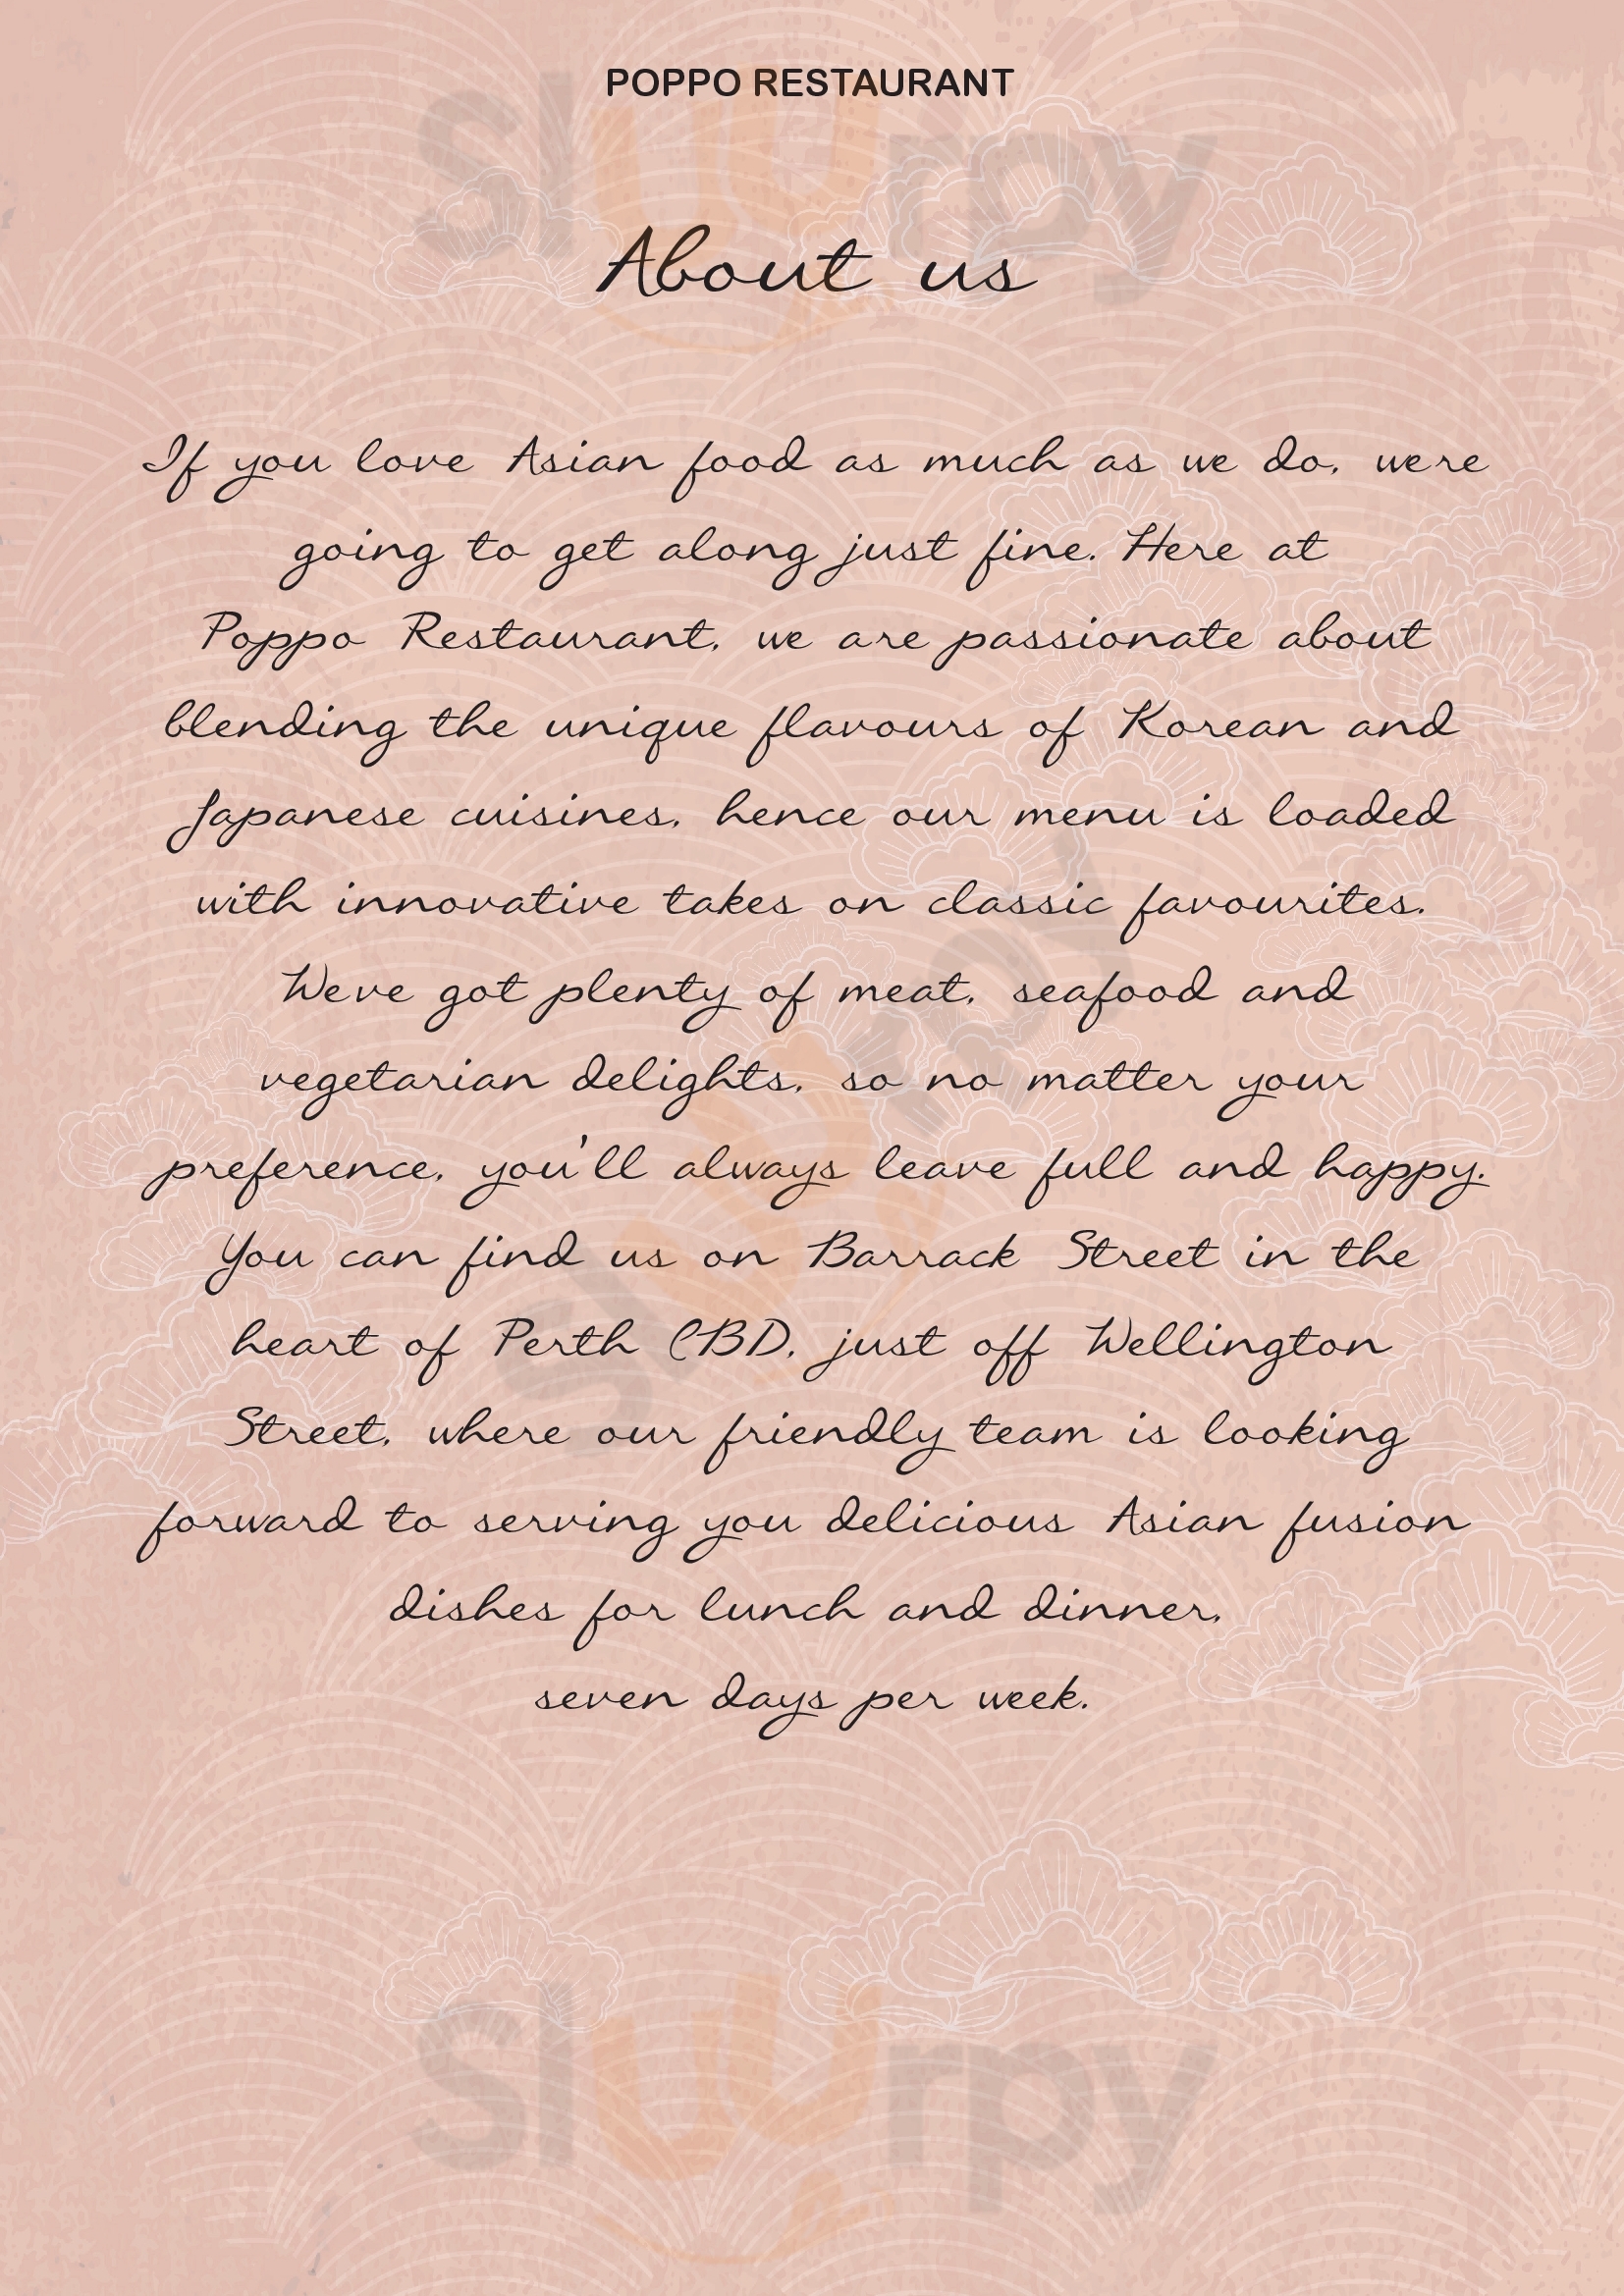 POPPO RESTAURANT
About us
If you love Asian food as much as we do, were
going to get along just fine. Here at
Poppo Restaurant, we are passionate about
blending the unique flavours of Korean and
Japanese cuisines, hence our menu is loaded
with innovative takes on classic favourites.
Weve got plenty of meat, seafood and
vegetarian delights, so no matter your
preference, you'll always leave full and happy.
You can find us on Barrack Street in the
heart of Perth CBD, just off Wellington
Street, where our friendly team is looking
forward to serving you delicious Asian fusion
dishes for lunch and dinner,
seven days per week.
slurpy
slurpy
slurpy